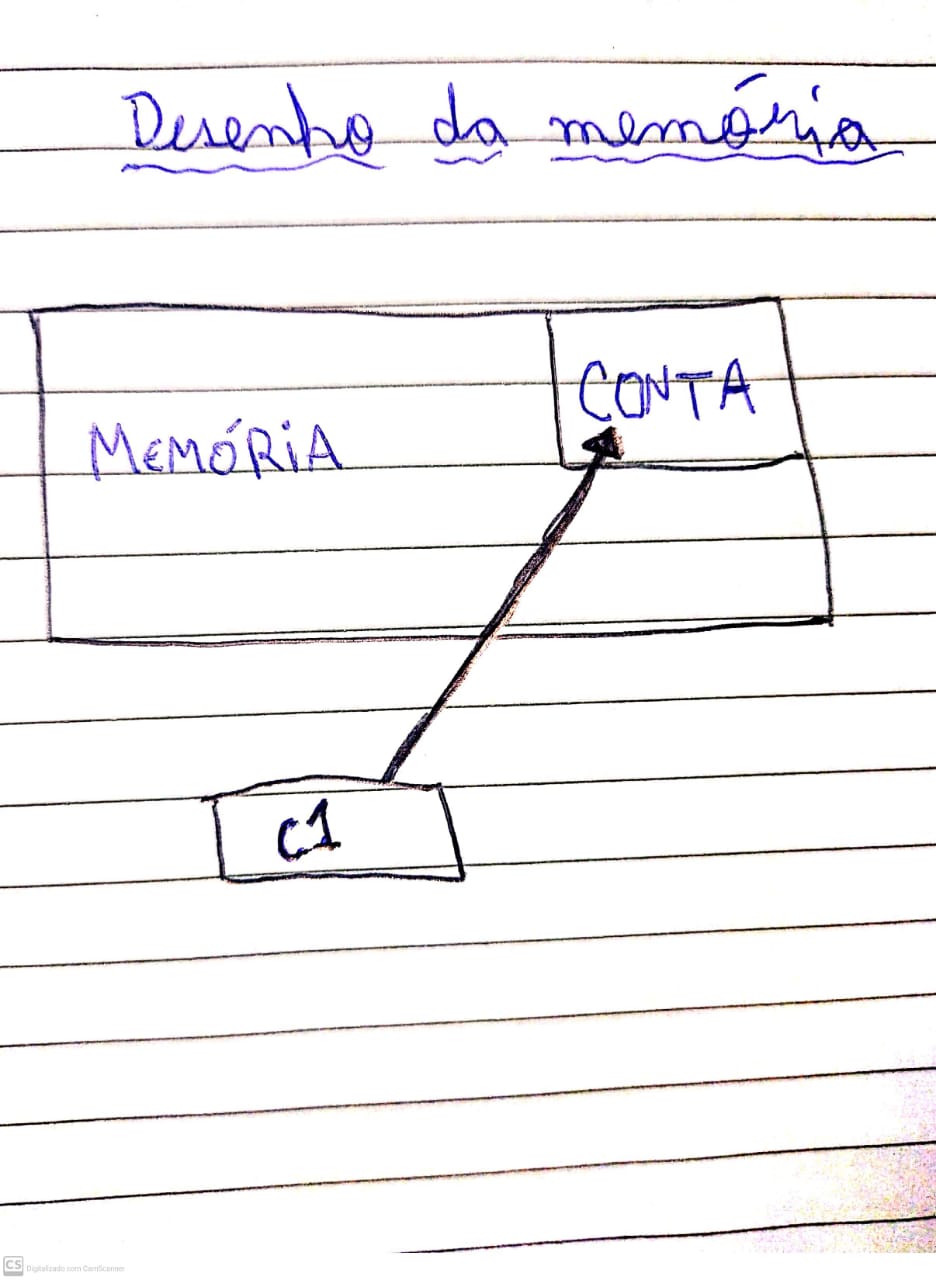 Desenho da memória
CONTA
MEMÓRiA
C1
CS Digitalizado com CamScanner